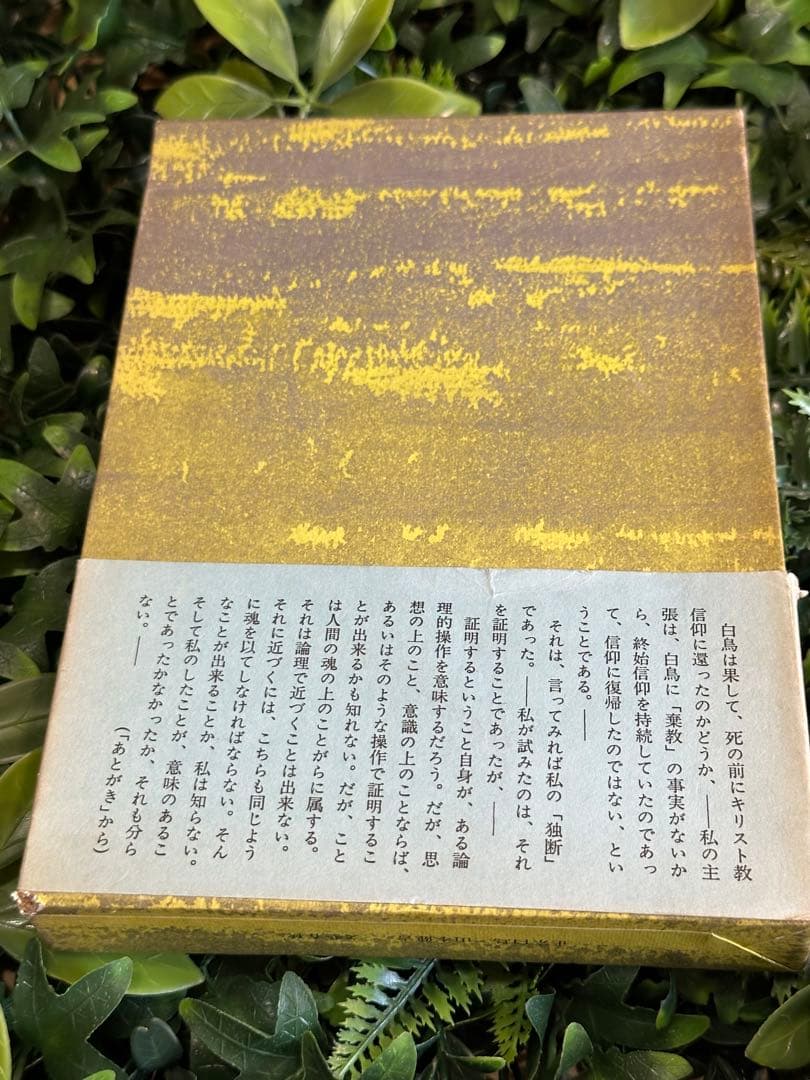 白鳥は果して、死の前にキリスト教
信仰に還ったのかどうか、――私の主
張は、白鳥に「棄教」の事実がないか
ら、終始信仰を持続していたのであっ
て、信仰に復帰したのではない、とい
うことである。――
それは、言ってみれば私の「独断」
であった。――私が試みたのは、それ
を証明することであったが、――
証明するということ自身が、ある論
理的操作を意味するだろう。だが、思
想の上のこと、意識の上のことならば、
あるいはそのような操作で証明するこ
とが出来るかも知れない。だが、こと
は人間の魂の上のことがらに属する。
それは論理で近づくことは出来ない。
それに近づくには、こちらも同じよう
に魂を以てしなければならない。そん
なことが出来ることか、私は知らない。
そして私のしたことが、意味のあるこ
とであったかなかったか、それも分ら
ない。――
（「あとがき」から）